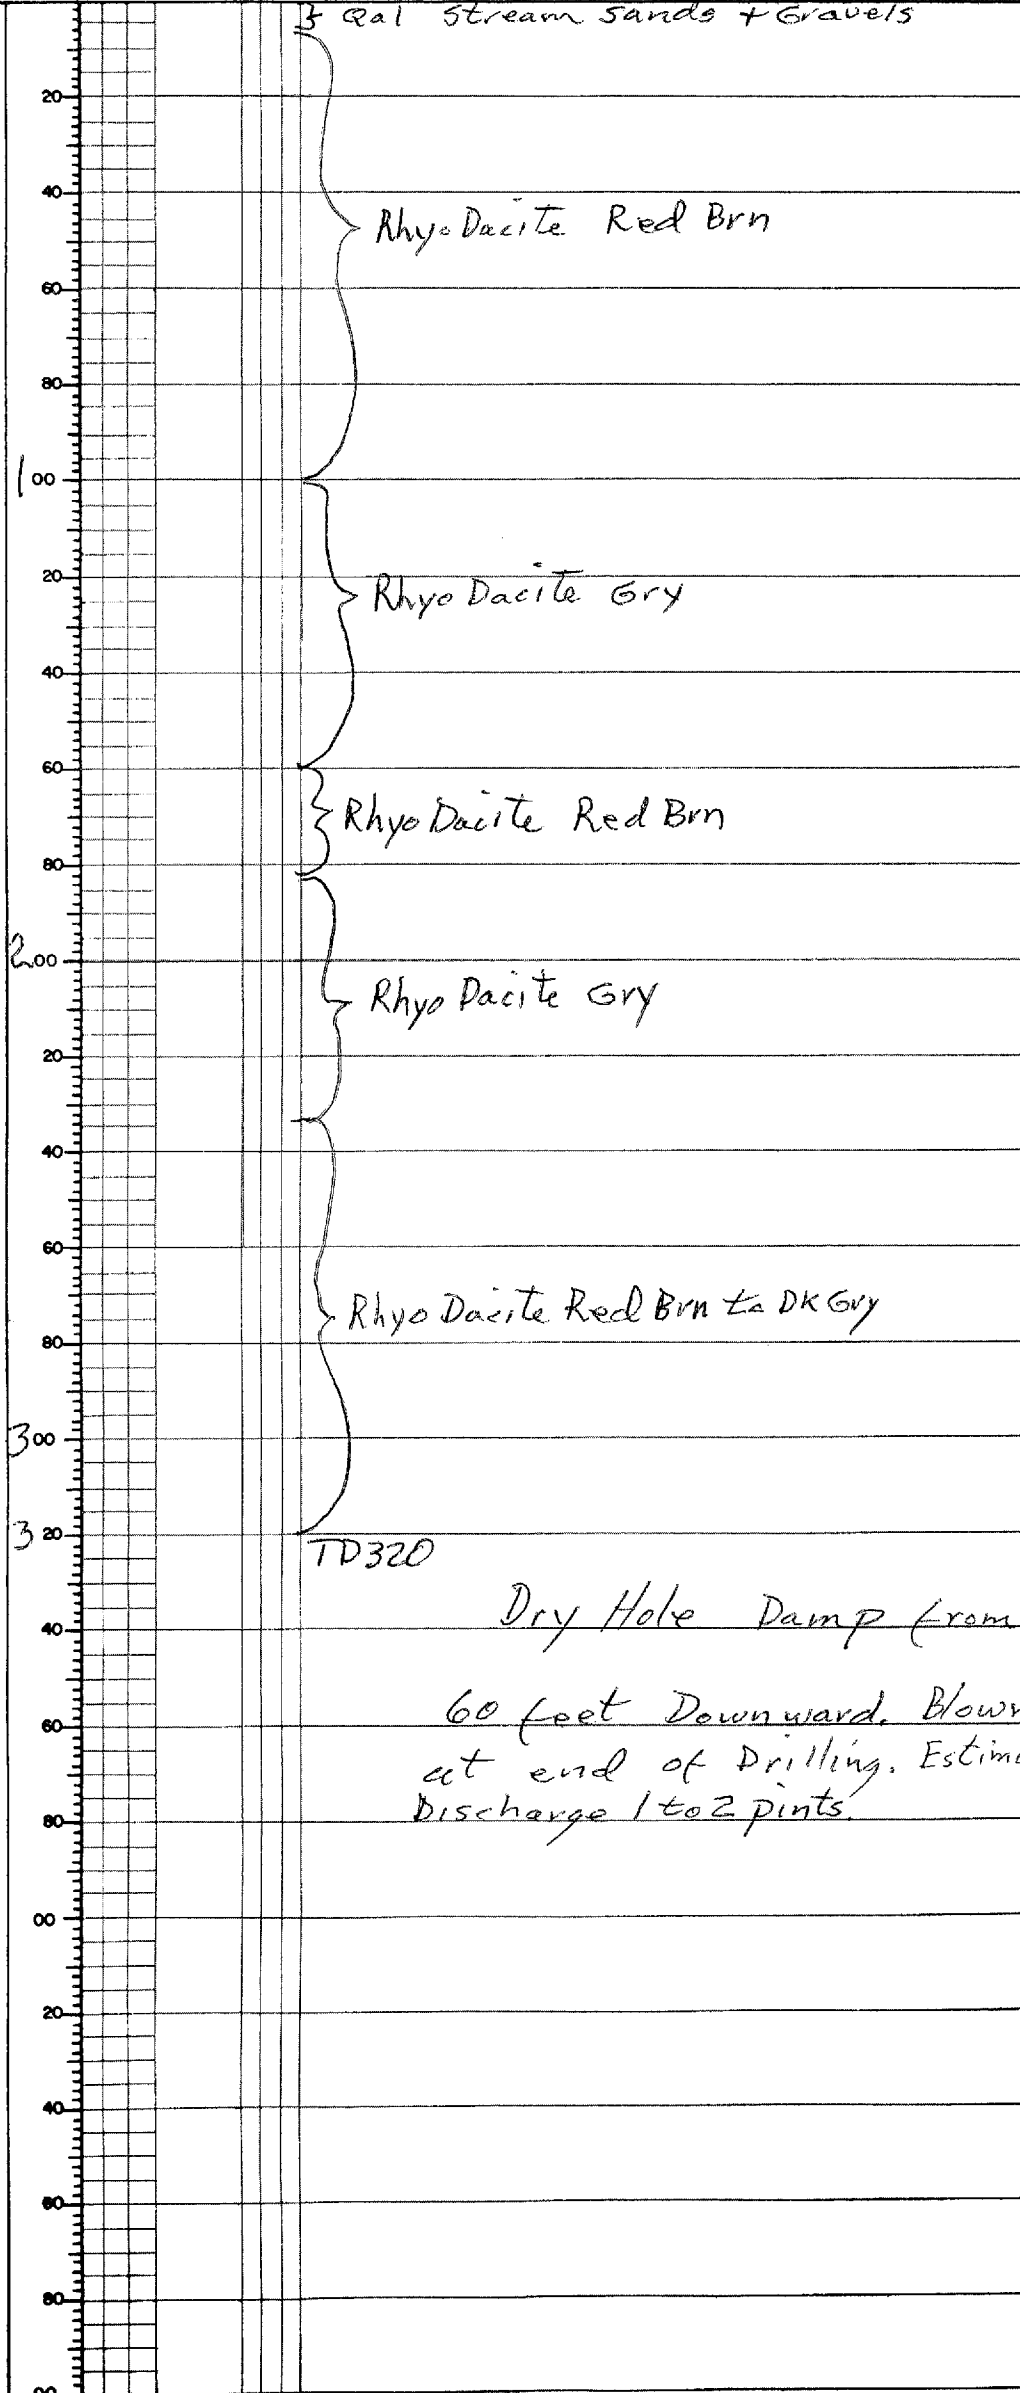 Qal Stream Sands + Gravels
20
40
RhyoDacite Red Brn
60
80
100
20
RhyoDacite Gry
40
60
RhyoDacite Red Brn
80
200
Rhyo Dacite Gry
20
40
60
Rhyo Dacite Red Brn to DK Gry
80
300
320
TD320
Dry Hole Damp from
40
60 feet Downward. Blown
60
at end of Drilling. Estim
Discharge 1 to 2 pints.
80
00
20
40
60
80
00